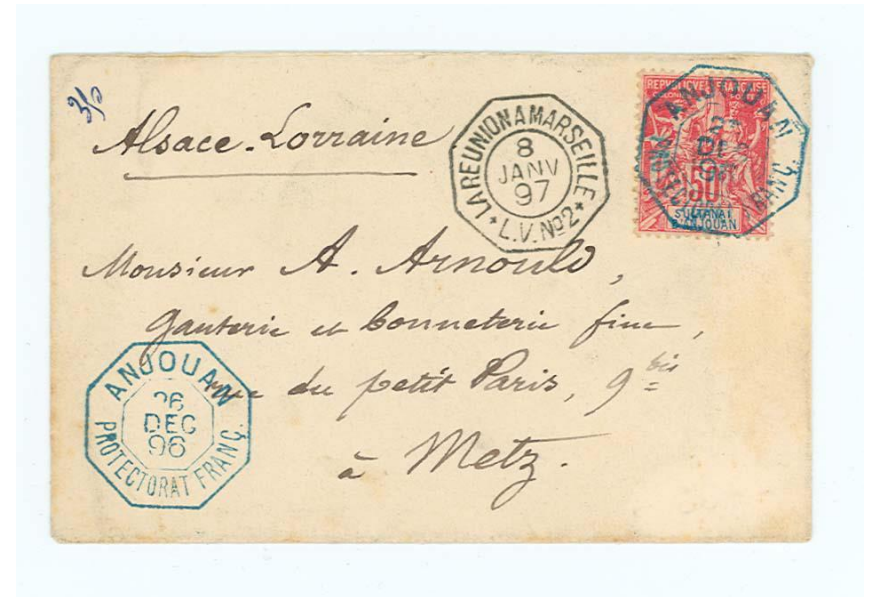 Alsace-Lorraine
LA REUNION A MARSEILLE
8
JANV
97
* L.V. No 2 *
REPUBLIQUE FRANCAISE
50
SULTANAT
D'ANJOUAN
ANJOUAN
DEC
96
FRANÇ.
Monsieur A. Arnould,
Ganterie et bonneterie fine,
rue du petit Paris, 9 bis
à Metz.
ANJOUAN
26
DEC
96
PROTECTORAT FRANÇ.